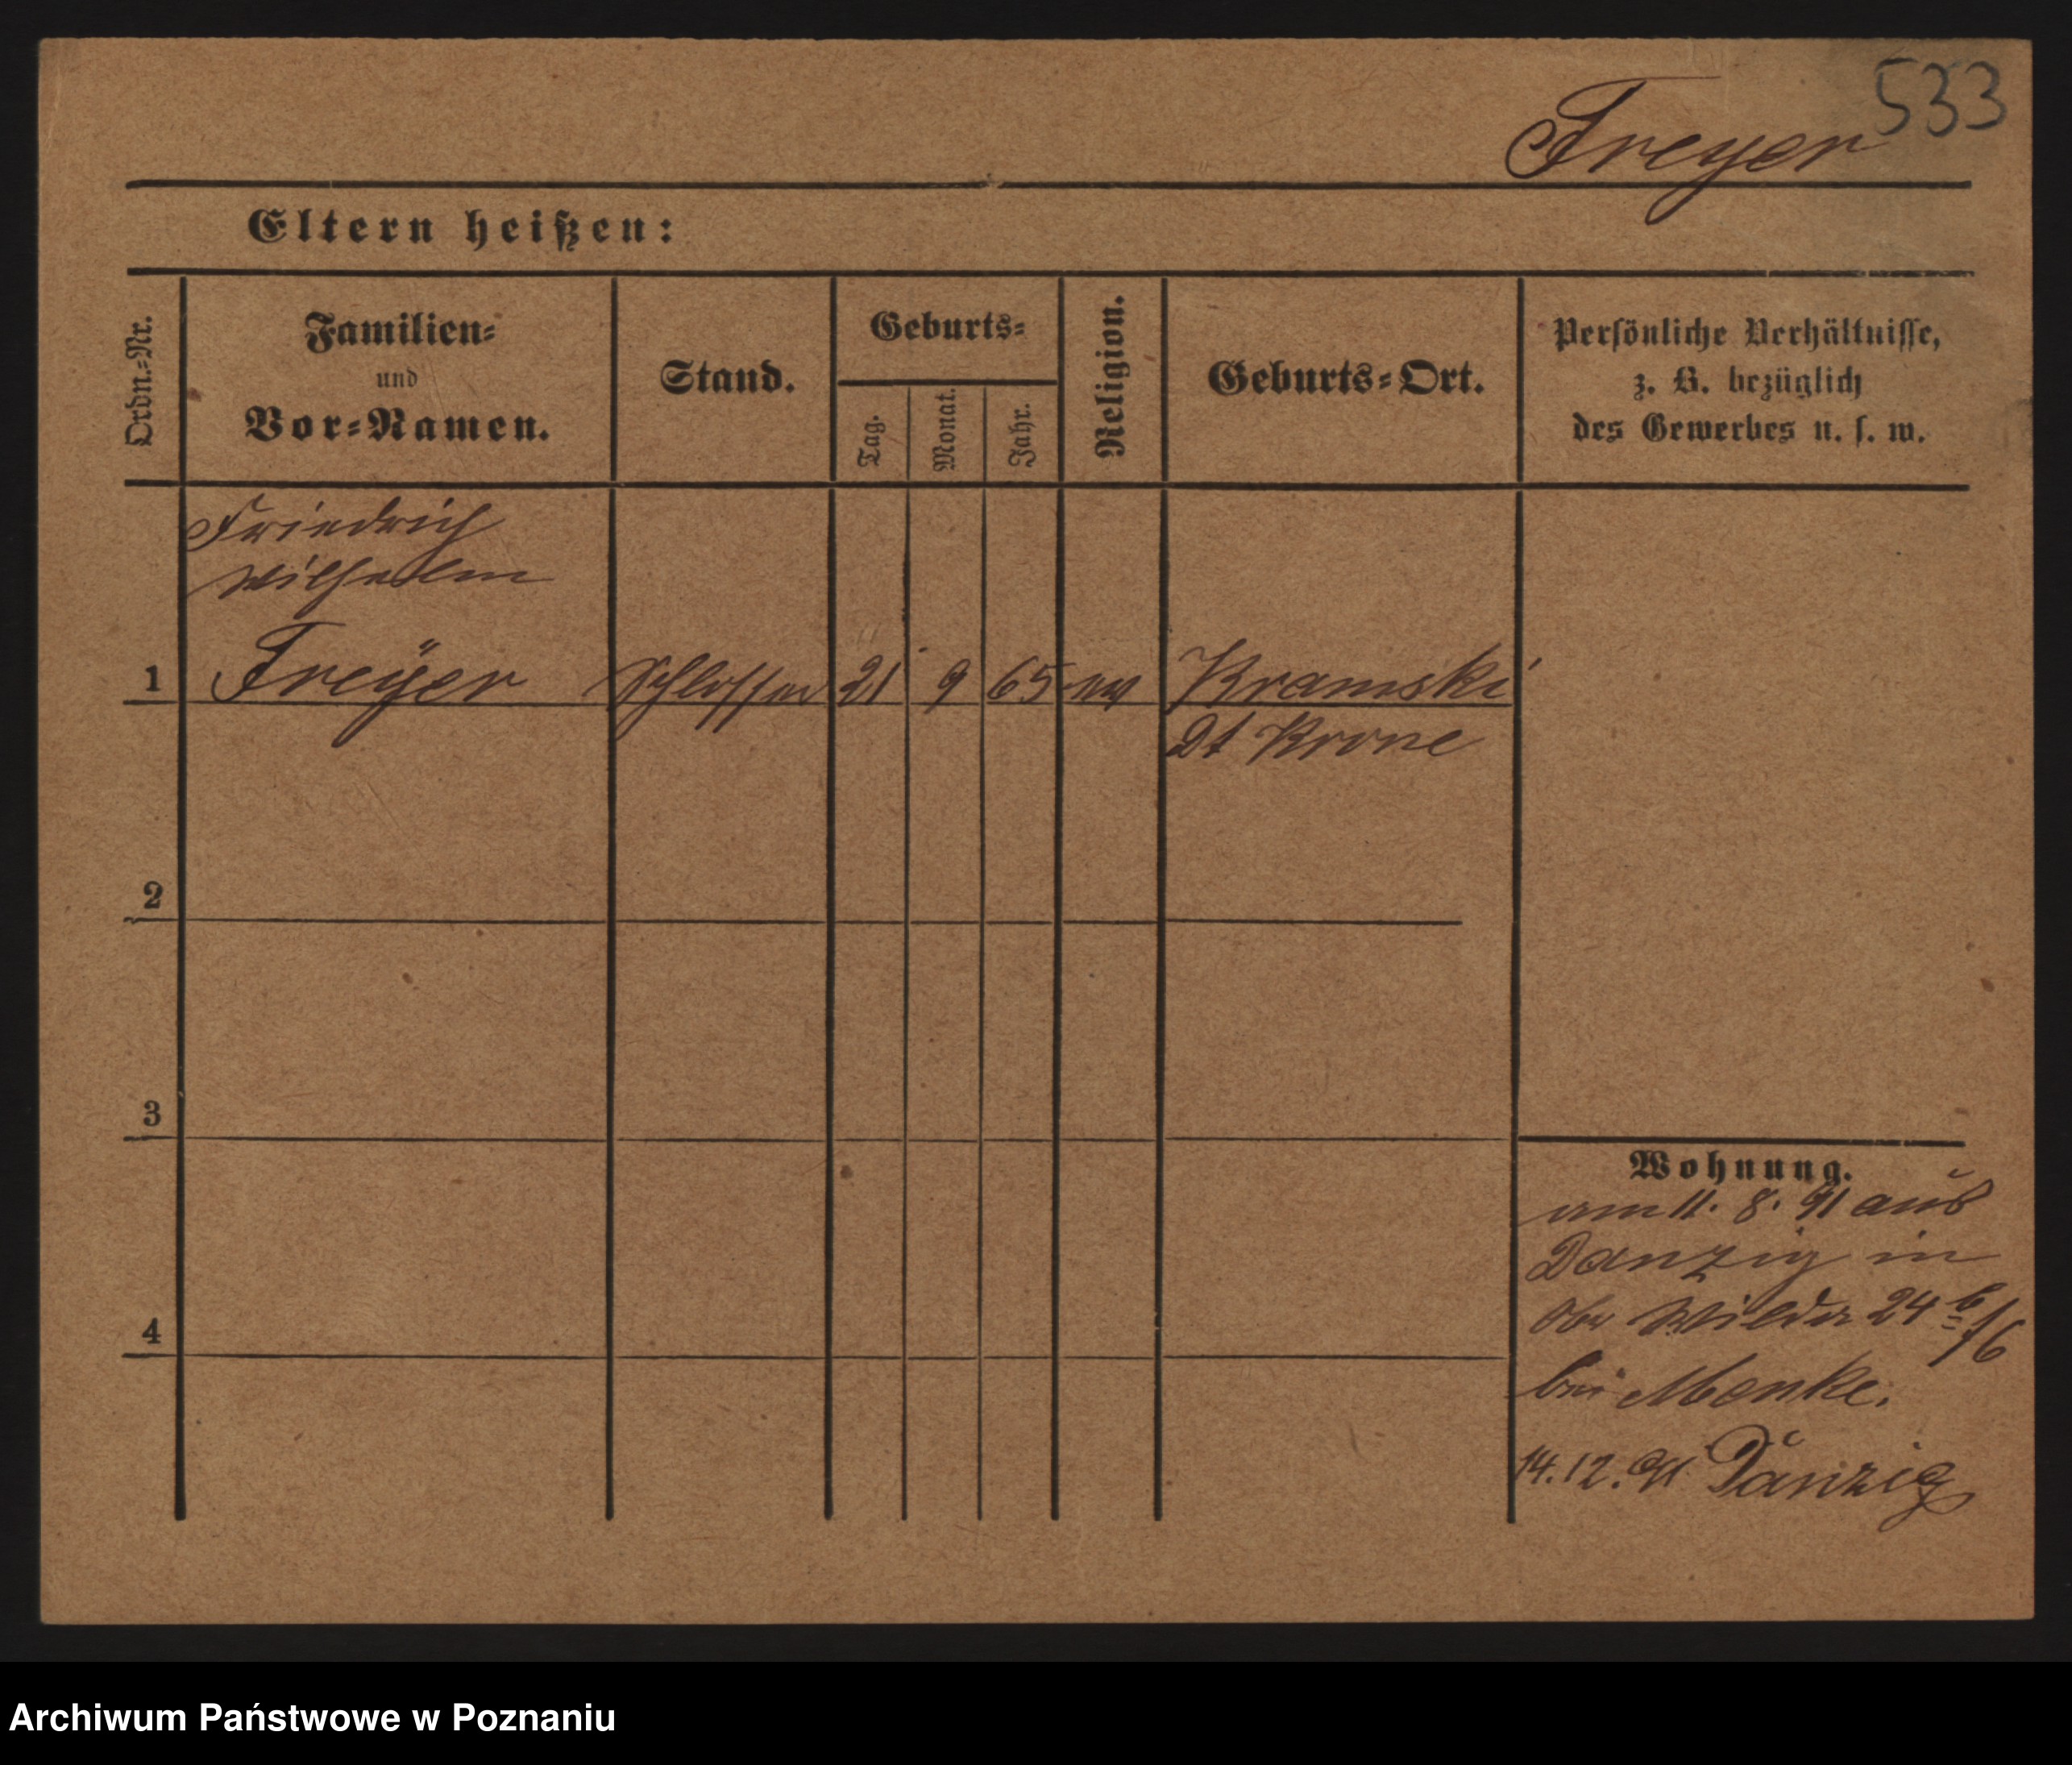 533
Freyer
Eltern heißen:
Ordn.-Nr.
Familien-
und
Vor-Namen.
Stand.
Geburts-
Tag.
Monat.
Jahr.
Religion.
Geburts-Ort.
Persönliche Verhältnisse,
z. B. bezüglich
des Gewerbes u. s. w.
Friedrich
Wilhelm
1 Freÿer Schlosser 21 9 65 ev Kramski
Dt Krone
2
3
4
Wohnung.
am 11. 8. 91 aus
Danzig in
Ober Wilda 24 b/6
bei Menke.
14.12.91 Danzig
Archiwum Państwowe w Poznaniu